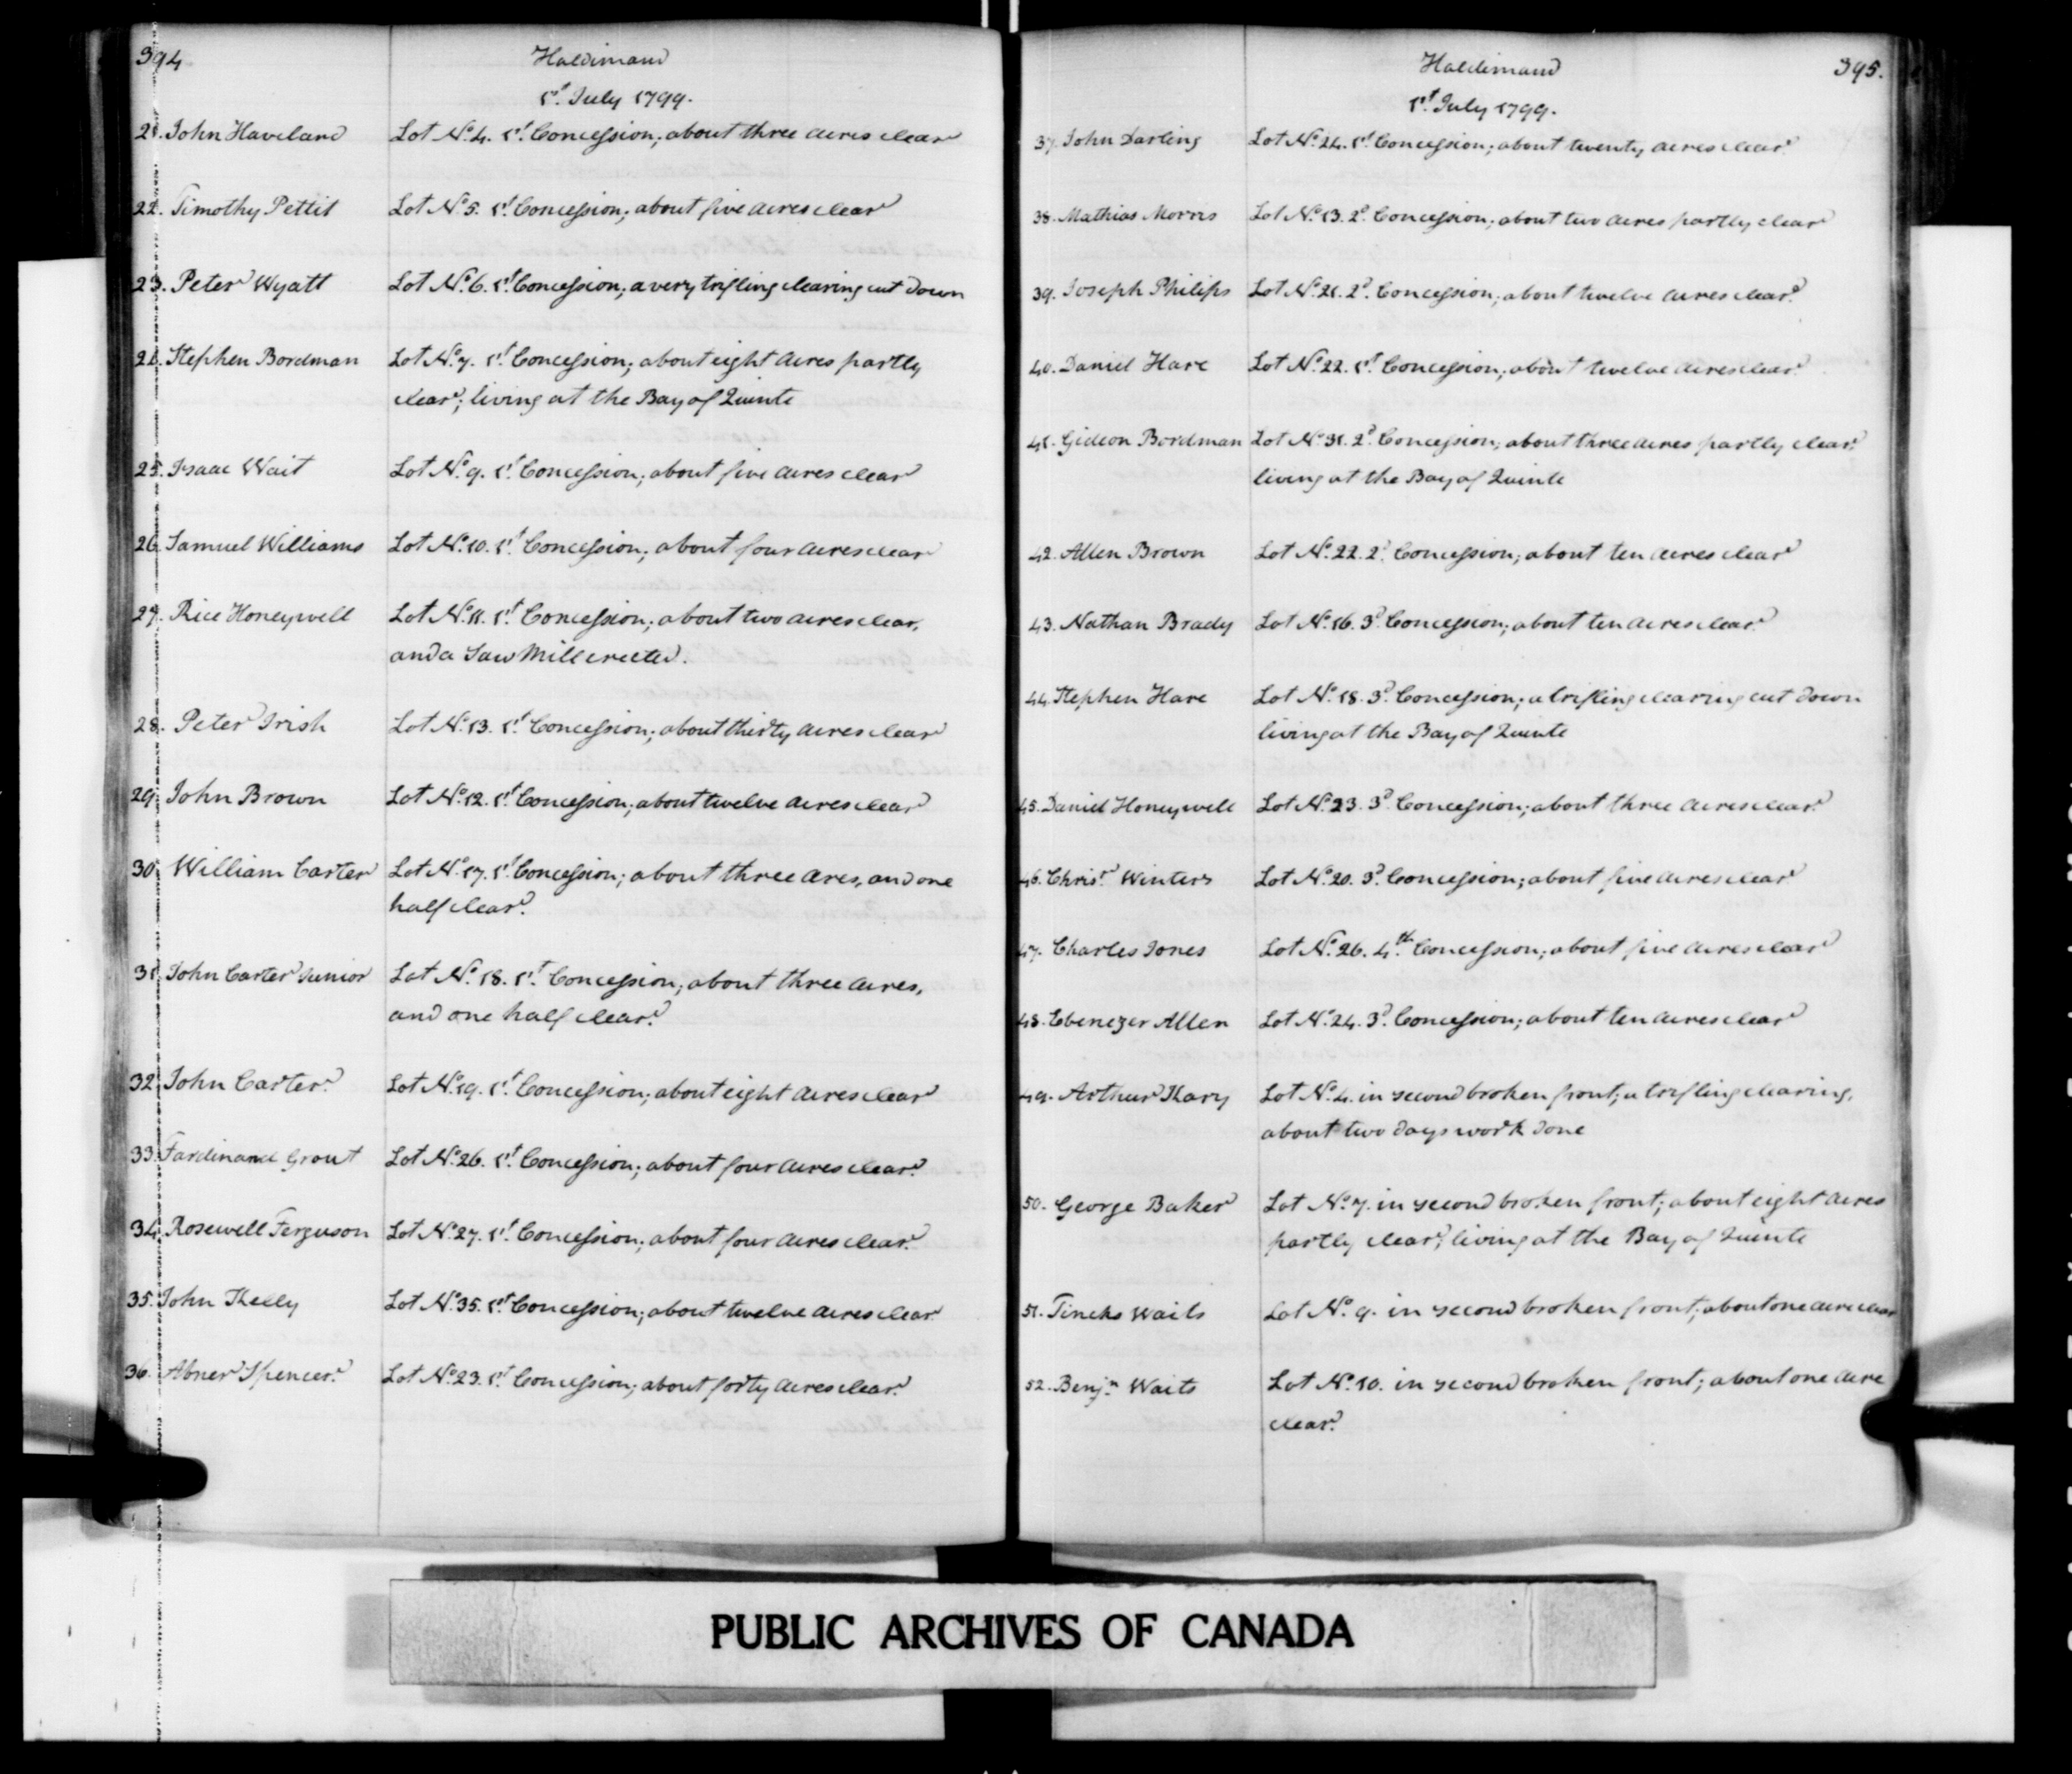 394
Haldimand
1st. July 1799.
21. John Haveland Lot No. 4. 1st. Concession; about three acres clear'd
22. Timothy Pettit Lot No. 5. 1st. Concession; about five acres clear'd
23. Peter Wyatt Lot No. 6. 1st. Concession; a very trifling clearing cut down
24. Stephen Bordman Lot No. 7. 1st. Concession; about eight acres partly
clear'd; living at the Bay of Quinte
25. Isaac Wait Lot No. 9. 1st. Concession; about five acres clear'd
26. Samuel Williams Lot No. 10. 1st. Concession; about four acres clear'd
27. Rice Honeywell Lot No. 11. 1st. Concession; about two acres clear,
and a Saw Mill erected.
28. Peter Irish Lot No. 13. 1st. Concession; about thirty acres clear'd
29. John Brown Lot No. 12. 1st. Concession; about twelve acres clear'd
30. William Carter Lot No. 17. 1st. Concession; about three acres, and one
half clear'd.
31. John Carter Junior Lot No. 18. 1st. Concession; about three acres,
and one half clear'd.
32. John Carter. Lot No. 19. 1st. Concession; about eight acres clear'd
33. Fardinand Grout Lot No. 26. 1st. Concession; about four acres clear'd.
34. Rosewell Ferguson Lot No. 27. 1st. Concession; about four acres clear'd.
35. John Kelly Lot No. 35. 1st. Concession; about twelve acres clear'd
36. Abner Spencer. Lot No. 23. 1st. Concession; about forty acres clear'd.
395.
Haldimand
1st. July 1799.
37. John Darling Lot No. 24. 1st. Concession; about twenty acres clear'd.
38. Mathias Morris Lot No. 13. 2d. Concession; about two acres partly clear'd
39. Joseph Philips Lot No. 21. 2d. Concession; about twelve acres clear'd.
40. Daniel Hare Lot No. 22. 1st. Concession; about twelve acres clear'd.
41. Gideon Bordman Lot No. 31. 2d. Concession; about three acres partly clear'd.
living at the Bay of Quinte
42. Allen Brown Lot No. 22. 2d. Concession; about ten acres clear'd
43. Nathan Brady Lot No. 16. 3d. Concession; about ten acres clear'd.
44. Stephen Hare Lot No. 18. 3d. Concession; a trifling clearing cut down
living at the Bay of Quinte
45. Daniel Honeywell Lot No. 23. 3d. Concession; about three acres clear'd.
46. Chrisr. Winters Lot No. 20. 3d. Concession; about five acres clear'd.
47. Charles Jones Lot No. 26. 4th. Concession; about five acres clear'd
48. Ebenezer Allen Lot No. 24. 3d. Concession; about ten acres clear'd
49. Arthur Kary Lot No. 4. in second broken front; a trifling clearing,
about two days work done
50. George Baker Lot No. 7. in second broken front; about eight acres
partly clear'd; living at the Bay of Quinte
51. Tincks Waits Lot No. 9. in second broken front; about one acre clear
52. Benjn. Waits Lot No. 10. in second broken front; about one acre
clear'd.
PUBLIC ARCHIVES OF CANADA